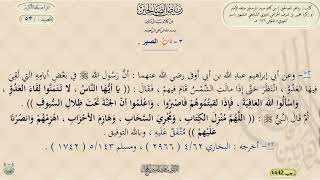 رياض الصالحين
٣ - باب الصبر
٥٣ - وعن أبي إبراهيم عبد الله بن أبي أوفى رضي الله عنهما : أن رسول الله ﷺ في بعض أيامه التي لقي فيها العدو ،
انتظر حتى إذا مالت الشمس قام فيهم ، فقال : (( يا أيها الناس ، لا تتمنوا لقاء العدو ،
واسألوا الله العافية ، فإذا لقيتموهم فاصبروا ، واعلموا أن الجنة تحت ظلال السيوف ))
ثم قال النبي ﷺ : (( اللهم منزل الكتاب ، ومجري السحاب ، وهازم الأحزاب ، اهزمهم وانصرنا
عليهم )) متفق عليه ، وبالله التوفيق .
٥٣- أخرجه : البخاري ٤/٦٢ ( ٢٩٦٦ ) ، ومسلم ٥/١٤٣ ( ١٧٤٢ )
1442